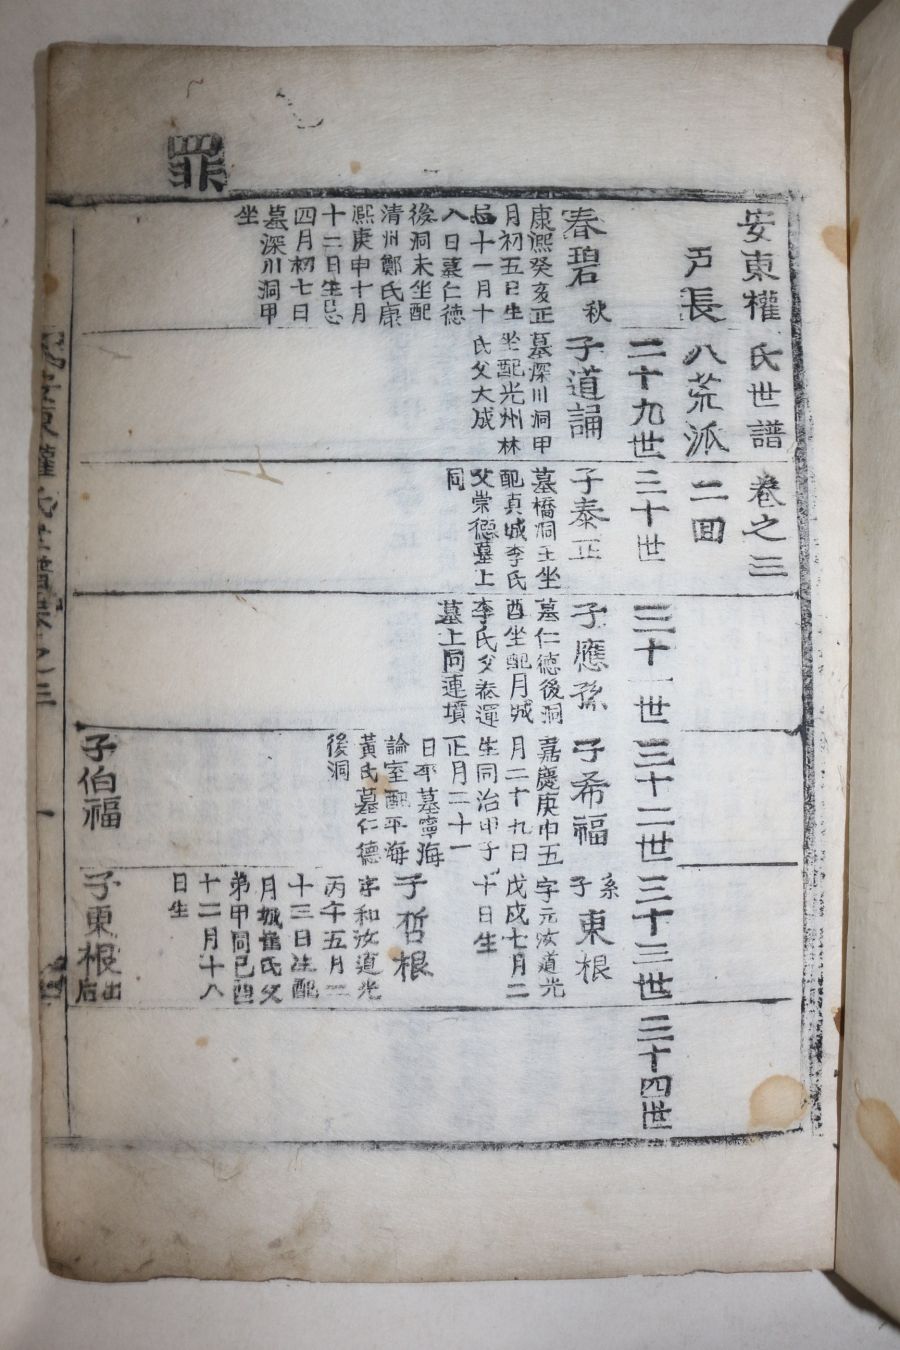 罪
安東權氏世譜卷之三
戶長八荒派二回
二十九世
三十世
三十一世
三十二世
三十三世
三十四世
春碧
秋
康熙癸亥正
月初五日生
忌十一月十
八日墓仁德
後洞未坐配
清州鄭氏康
熙庚申十月
十二日生忌
四月初七日
墓深川洞甲
坐
子道誦
墓深川洞甲
坐配光州林
氏父大成
子泰正
墓橋洞壬坐
配真城李氏
父崇德墓上
同
子應孫
墓仁德後洞
酉坐配月城
李氏父泰運
墓上同連墳
子希福
嘉慶庚申五
月二十九日
生同治甲子
正月二十一
日卒墓寧海
論室配平海
黃氏墓仁德
後洞
子伯福
系子東根
字元汝道光
戊戌七月二
十日生
子哲根
字和汝道光
丙午五月二
十三日生配
月城崔氏父
弟甲同己酉
十二月十八
日生
子東根出后
安東權氏世譜卷之三
一